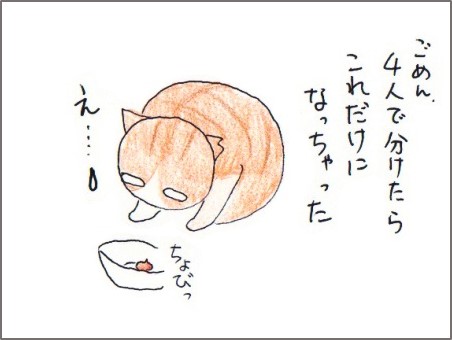 ごめん、
4人で分けたら
これだけに
なっちゃった
え……
ちょびっ